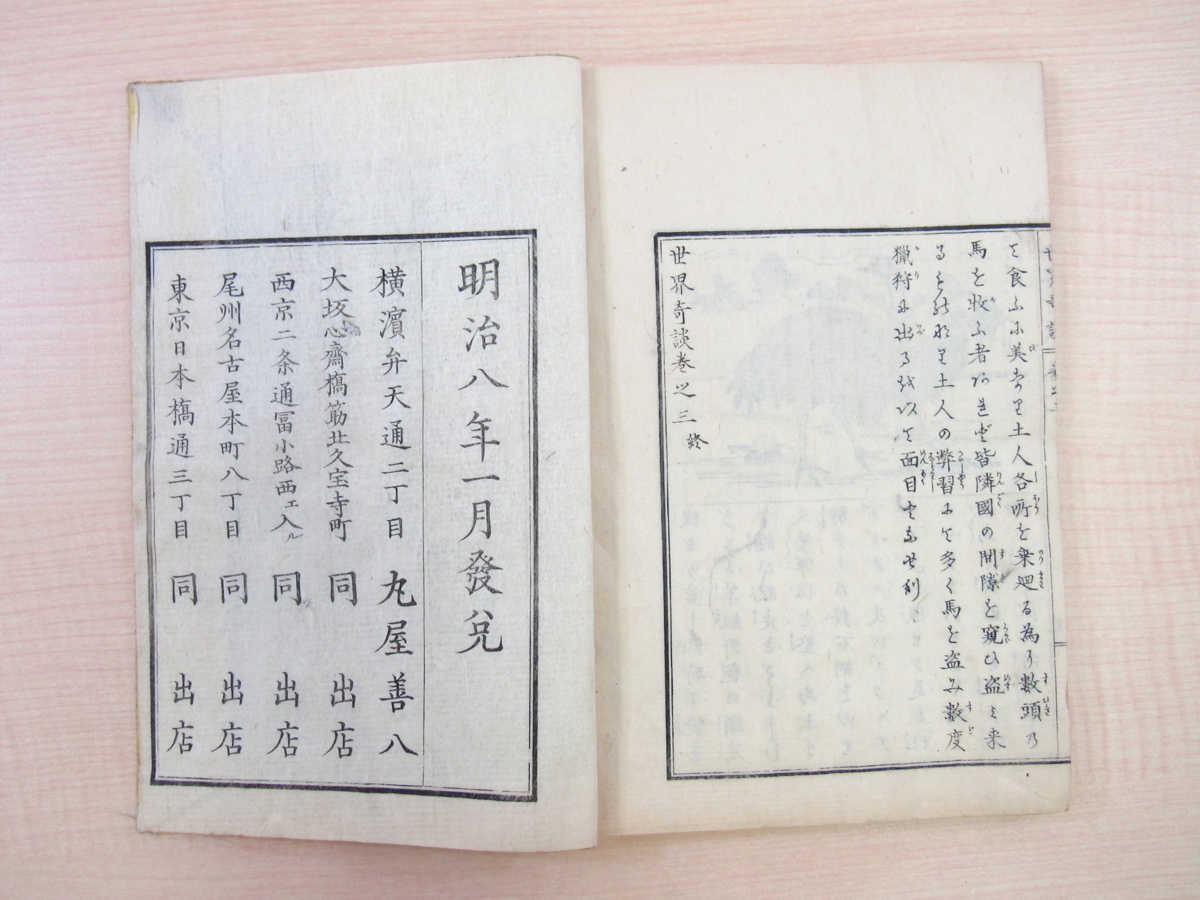 を食ふに美なり土人各所を乗廻る為め数頭の
馬を牧ふ者あれど皆隣國の間隙を窺ひ盗み来
るものなり土人の弊習にて多く馬を盗み数度
獵狩に出るを以て面目となせり
世界奇談巻之三 終
明治八年一月發兌
横濱弁天通二丁目 丸屋善八
大坂心齋橋筋北久宝寺町 同 出店
西京二条通冨小路西エ入ル 同 出店
尾州名古屋本町八丁目 同 出店
東京日本橋通三丁目 同 出店